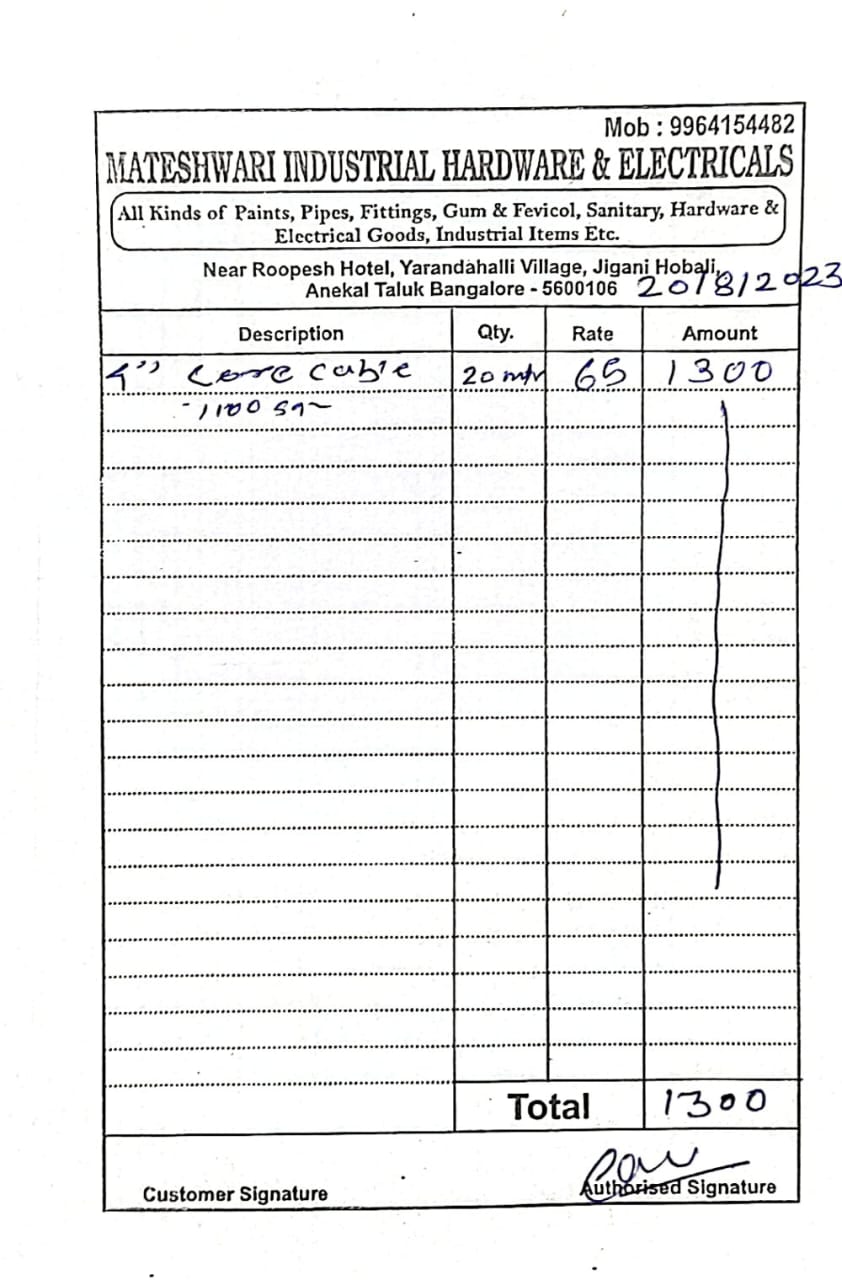 Mob : 9964154482
MATESHWARI INDUSTRIAL HARDWARE & ELECTRICALS
All Kinds of Paints, Pipes, Fittings, Gum & Fevicol, Sanitary, Hardware &
Electrical Goods, Industrial Items Etc.
Near Roopesh Hotel, Yarandahalli Village, Jigani Hobali,
Anekal Taluk Bangalore - 5600106 20/8/2023
Description Qty. Rate Amount
4" core cable 20 mtr 65 1300
Total 1300
Customer Signature Authorised Signature